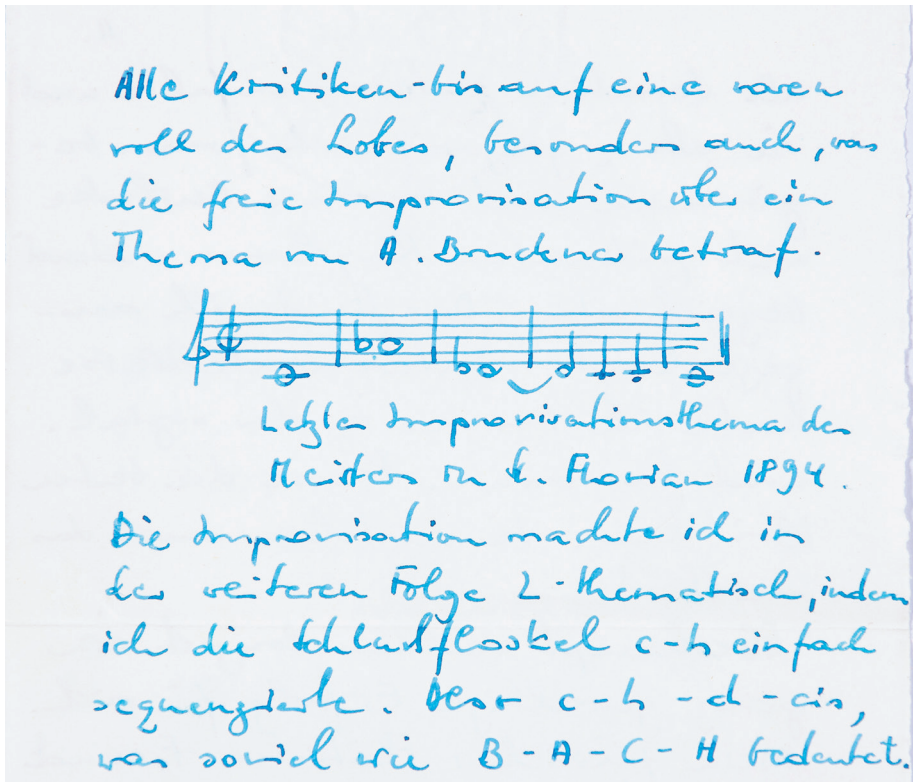 Alle Kritiken - bis auf eine waren
voll des Lobes, besonders auch, was
die freie Improvisation über ein
Thema von A. Bruckner betraf.
Letztes Improvisationsthema des
Meisters in St. Florian 1894.
Die Improvisation machte ich in
der weiteren Folge 2-thematisch, indem
ich die Schlußfloskel c-h einfach
sequenzierte. Also c-h-d-cis,
was soviel wie B-A-C-H bedeutet.